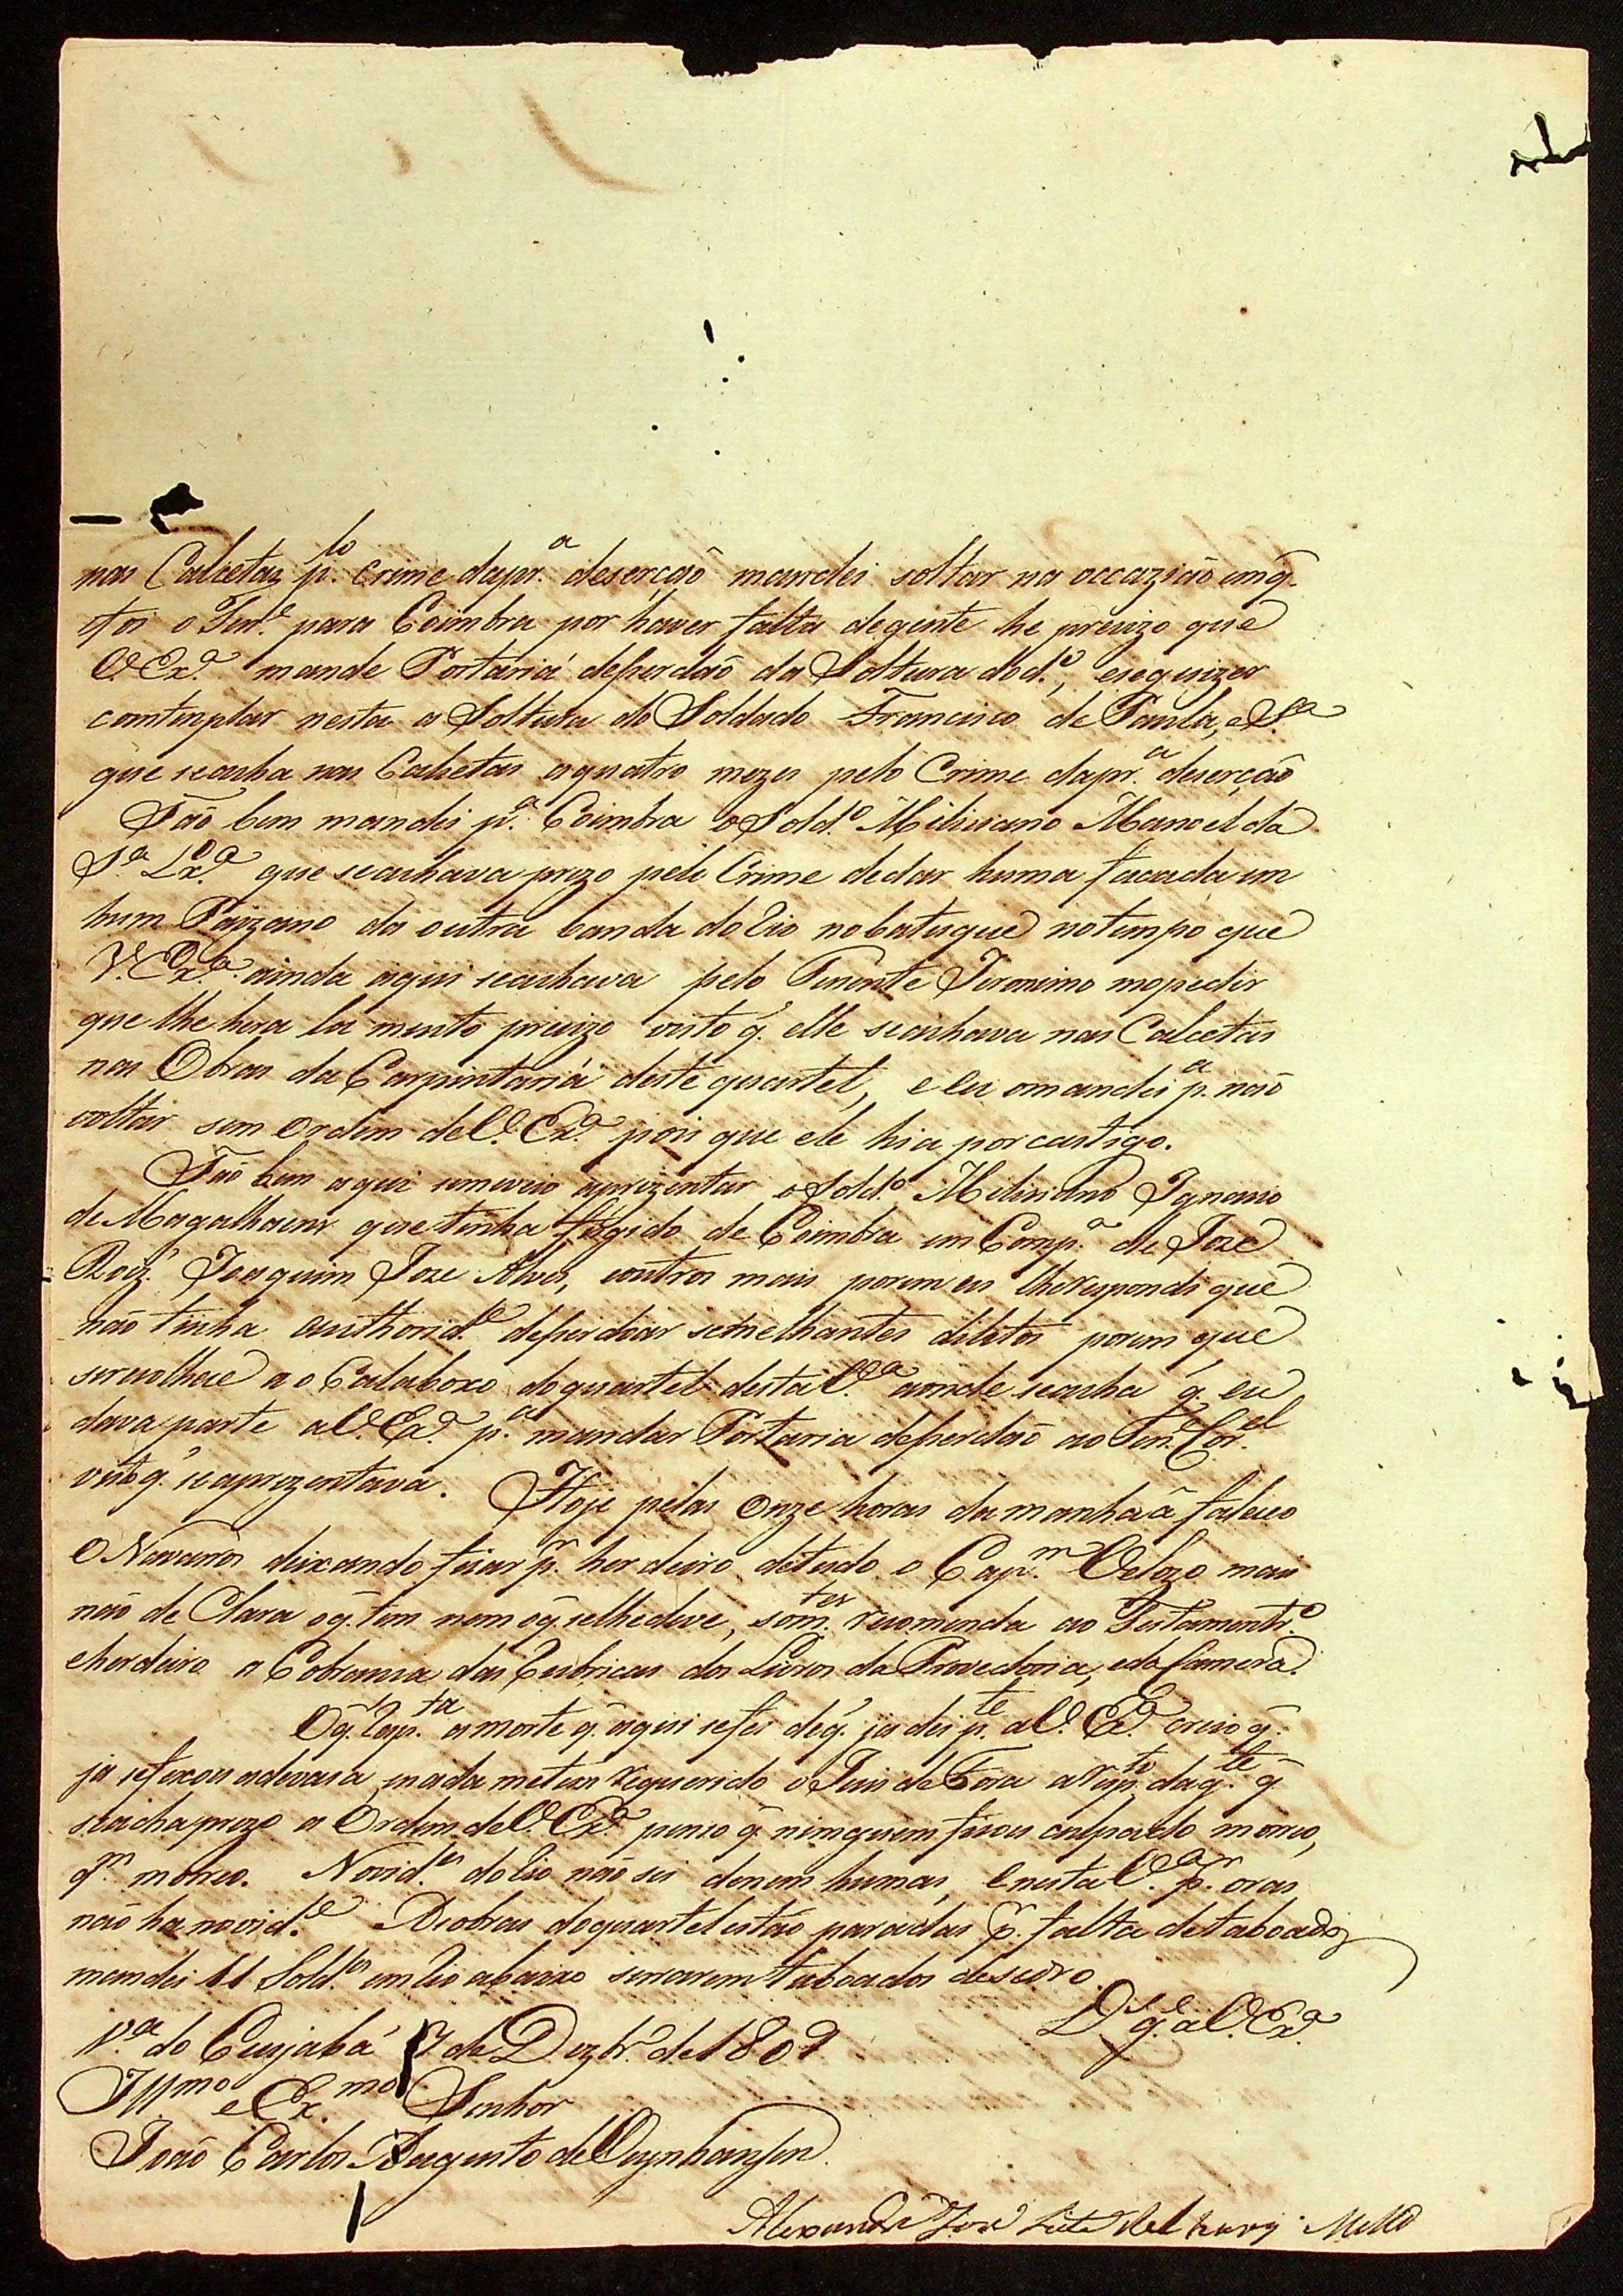 nas Calcetas p.lo crime dapr.a deserção mandei soltar na occazião em q̃.
foi o Ten.e para Coimbra por haver falta degente he precizo que
V. Ex.a mande Portaria deperdão da Soltura dod.o, esequizer
comtemplar nesta a Soltura do Soldado Francisco de Paula, e S.a
que seacha nas Calsetas aquatro mezes pelo Crime dapr.a deserção
Tão bem mandei p.a Coimbra o Sold.o Miliciano Manoel da
S.a que seachava prezo pelo Crime dedar huma facada em
hum Paizano da outra banda do Rio nobatuque notempo que
V. Ex.a ainda aqui seachava pelo Tenente Jeronimo mopedir
que lhe hera la muito precizo visto q̃. elle seachava nas Calcetas
nas Obras da Carpintaria deste quartel, e eu omandei p.a não
voltar sem ordem deV. Ex.a pois que ele hia por castigo.
Tão bem aqui semeveio aprezentar o Sold.o Miliciano Ignacio
de Magalhaens que tinha fugido de Coimbra em Comp.a de Joze
Roiz' Joaquim Joze Alves, eoutros mais porem eu lherespondi que
não tinha authorid.e deperdoar semelhantes delitos porem que
serecolhece ao Calaboxo doquartel desta V.a aonde seacha q̃. eu
dava parte aV. Ex.a p.a mandar Portaria deperdão ao Ten. Cor.el
visto q̃. seaprezentava. Hoje pelas onze horas da manhaã faleceo
O Navarros deixando ficar p.r herdeiro detudo o Cap.m Velozo mais
não de Clara oq̃. tem nem oq̃. selhedeve, som.te recomenda ao Testamentr.o
eherdeiro a Cobransa das Rubricas dos Livros da Provedoria, eda Camera.
Oq̃. resp.ta amorte q̃. aqui sefes deq̃. ja dei p.te aV. Ex.a creio q̃.
ja sefexou adevasa, enada metem requerido o Juis de Fora arespt.o daq.le q̃
seachaprezo a Ordem deV. Ex.a penso q̃ nimguem ficou culpado moreo,
q.m moreo. Novid.es doRio não sei denemhumas, enesta V.a p.r oras
não ha novid.e As obras doquartel estão paradas p.r falta detaboados
mandei 11 Sold.os em Rio abaixo serrarem taboados desedro.
D.s g.e aV. Ex.a
V.a do Cuyabá 17 de Dezbr.o de 1809
Ill.mo e Ex.mo Senhor
João Carlos Augusto de Oeynhausen.
Alexandre Joze Leite Mello